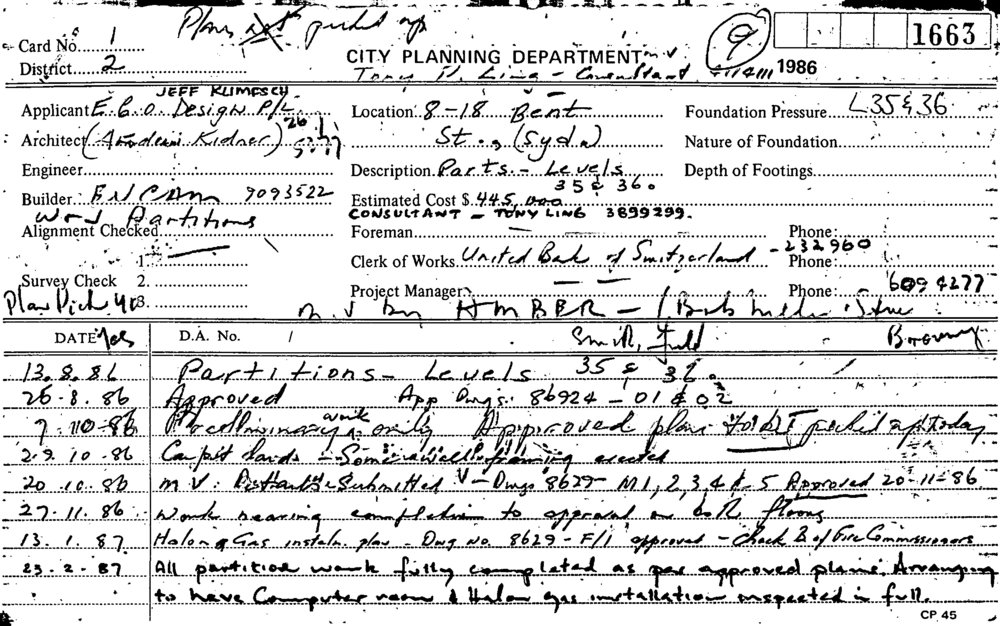 Plans not picked up
Card No. 1
CITY PLANNING DEPARTMENT
9
1663
District 2
Tony Ling - Consultant
1986
JEFF KLIMESCH
Applicant E.G.O. Design P/L
Location 8-18 Bent
Foundation Pressure L35 & 36
Architect (Andrew Kidner)
St., (Syd.)
Nature of Foundation
Engineer
Description Parts - Levels
Depth of Footings
35 & 36.
Builder 7093522
Estimated Cost $ 445,000
Partitions
CONSULTANT - TONY LING 3899299.
Alignment Checked
Foreman
Phone:
1.
Clerk of Works United Bank of Switzerland - 232960
Phone:
Survey Check 2.
Project Manager
Phone: 609 4277
3.
DATE
D.A. No.
13.8.86 Partitions - Levels 35 & 36.
26.8.86 Approved App Dwgs. 86924 - 01 & 02
7.10.86 Preliminary work only Approved plan picked up today
29.10.86 - Some wall framing erected
20.10.86 M V: Submitted - Dwgs 8629 - M1, 2, 3, 4 & 5 Approved 20-11-86
27.11.86 Work nearing completion to approval on both floors
13.1.87 Halon Gas instaln. plan - Dwg no. 8629 - F/1 approved - Check B of Fire Commissioners
23.2.87 All partition work fully completed as per approved plans. Arranging
to have Computer room & Halon gas installation inspected in full.
CP 45